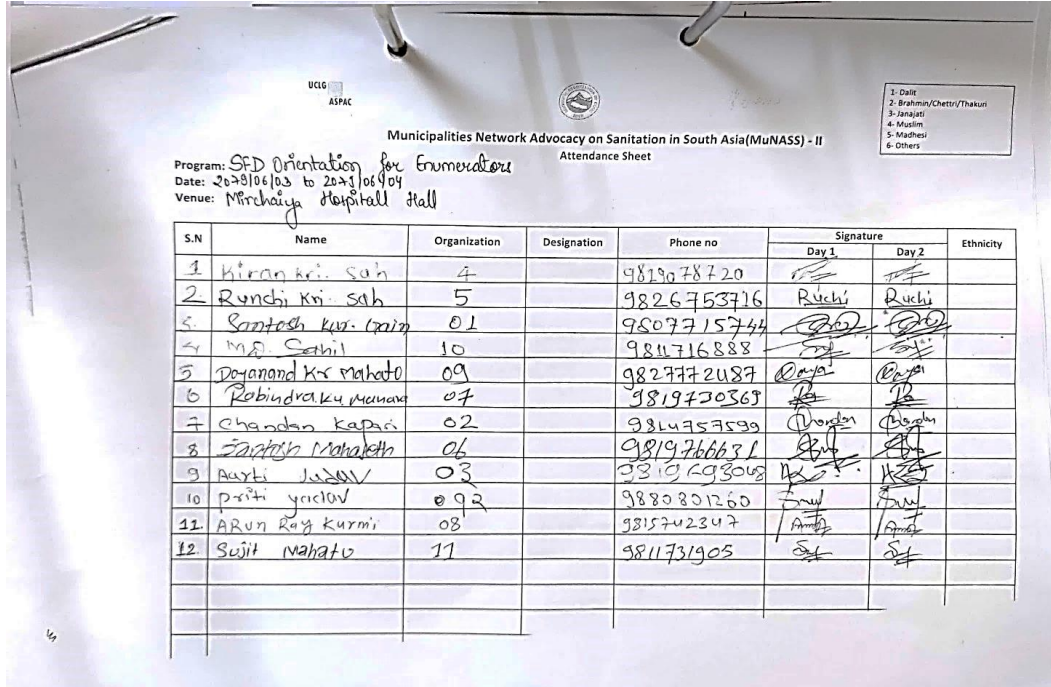 UCLG
ASPAC
1- Dalit
2- Brahmin/Chettri/Thakuri
3- Janajati
4- Muslim
5- Madhesi
6- Others
Municipalities Network Advocacy on Sanitation in South Asia(MuNASS) - II
Attendance Sheet
Program: SFD Orientation for Enumerators
Date: 2079/06/03 to 2079/06/04
Venue: Mirchaiya Hospitall Hall
S.N Name Organization Designation Phone no Signature Ethnicity
Day 1 Day 2
1 Kiran kri. Sah 4 9819078720
2. Runchi Kri Sah 5 9826753716 Ruchi Ruchi
3. Santosh Kur. 01 9807715744
4 MD. Sahil 10 9811716888
5 Dayanand Kr Mahato 09 9827772487 Daya Daya
6 Rabindra Ku 07 9819730369
7 Chandan Kapari 02 9814757599 Chandan Chandan
8 Santosh Mahaseth 06 9819766631
9 Aarti Yadav 03
10 Priti yadav 092 9880801260
11. ARun Ray Kurmi 08 9815742347
12. Sujit Mahato 11 9811731905